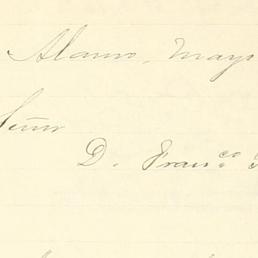 Alamo, Mayo
Señor
D. Franco